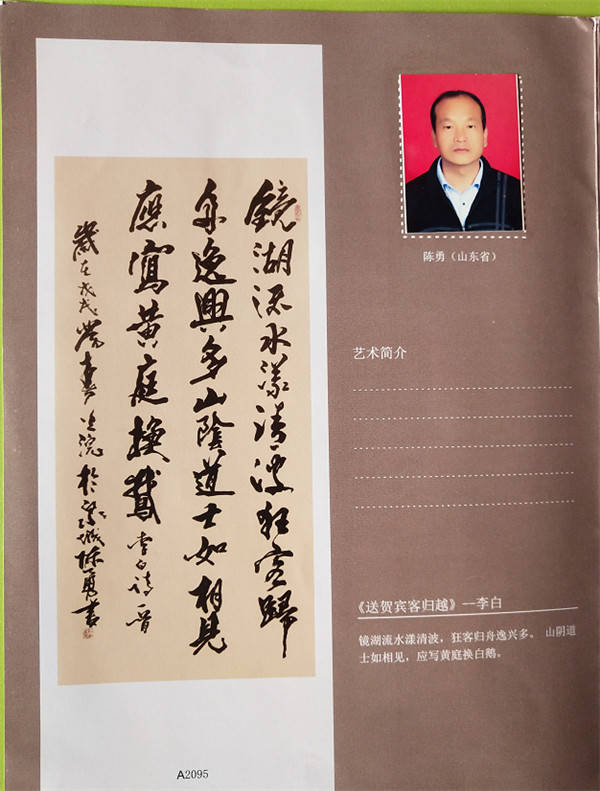 鏡湖流水漾清波狂客歸
舟逸興多山陰道士如相見
應寫黄庭換鵞李白詩
歲在戊戌於城陳勇書
A2095
陈勇（山东省）
艺术简介
《送贺宾客归越》--李白
镜湖流水漾清波，狂客归舟逸兴多。 山阴道
士如相见，应写黄庭换白鹅。